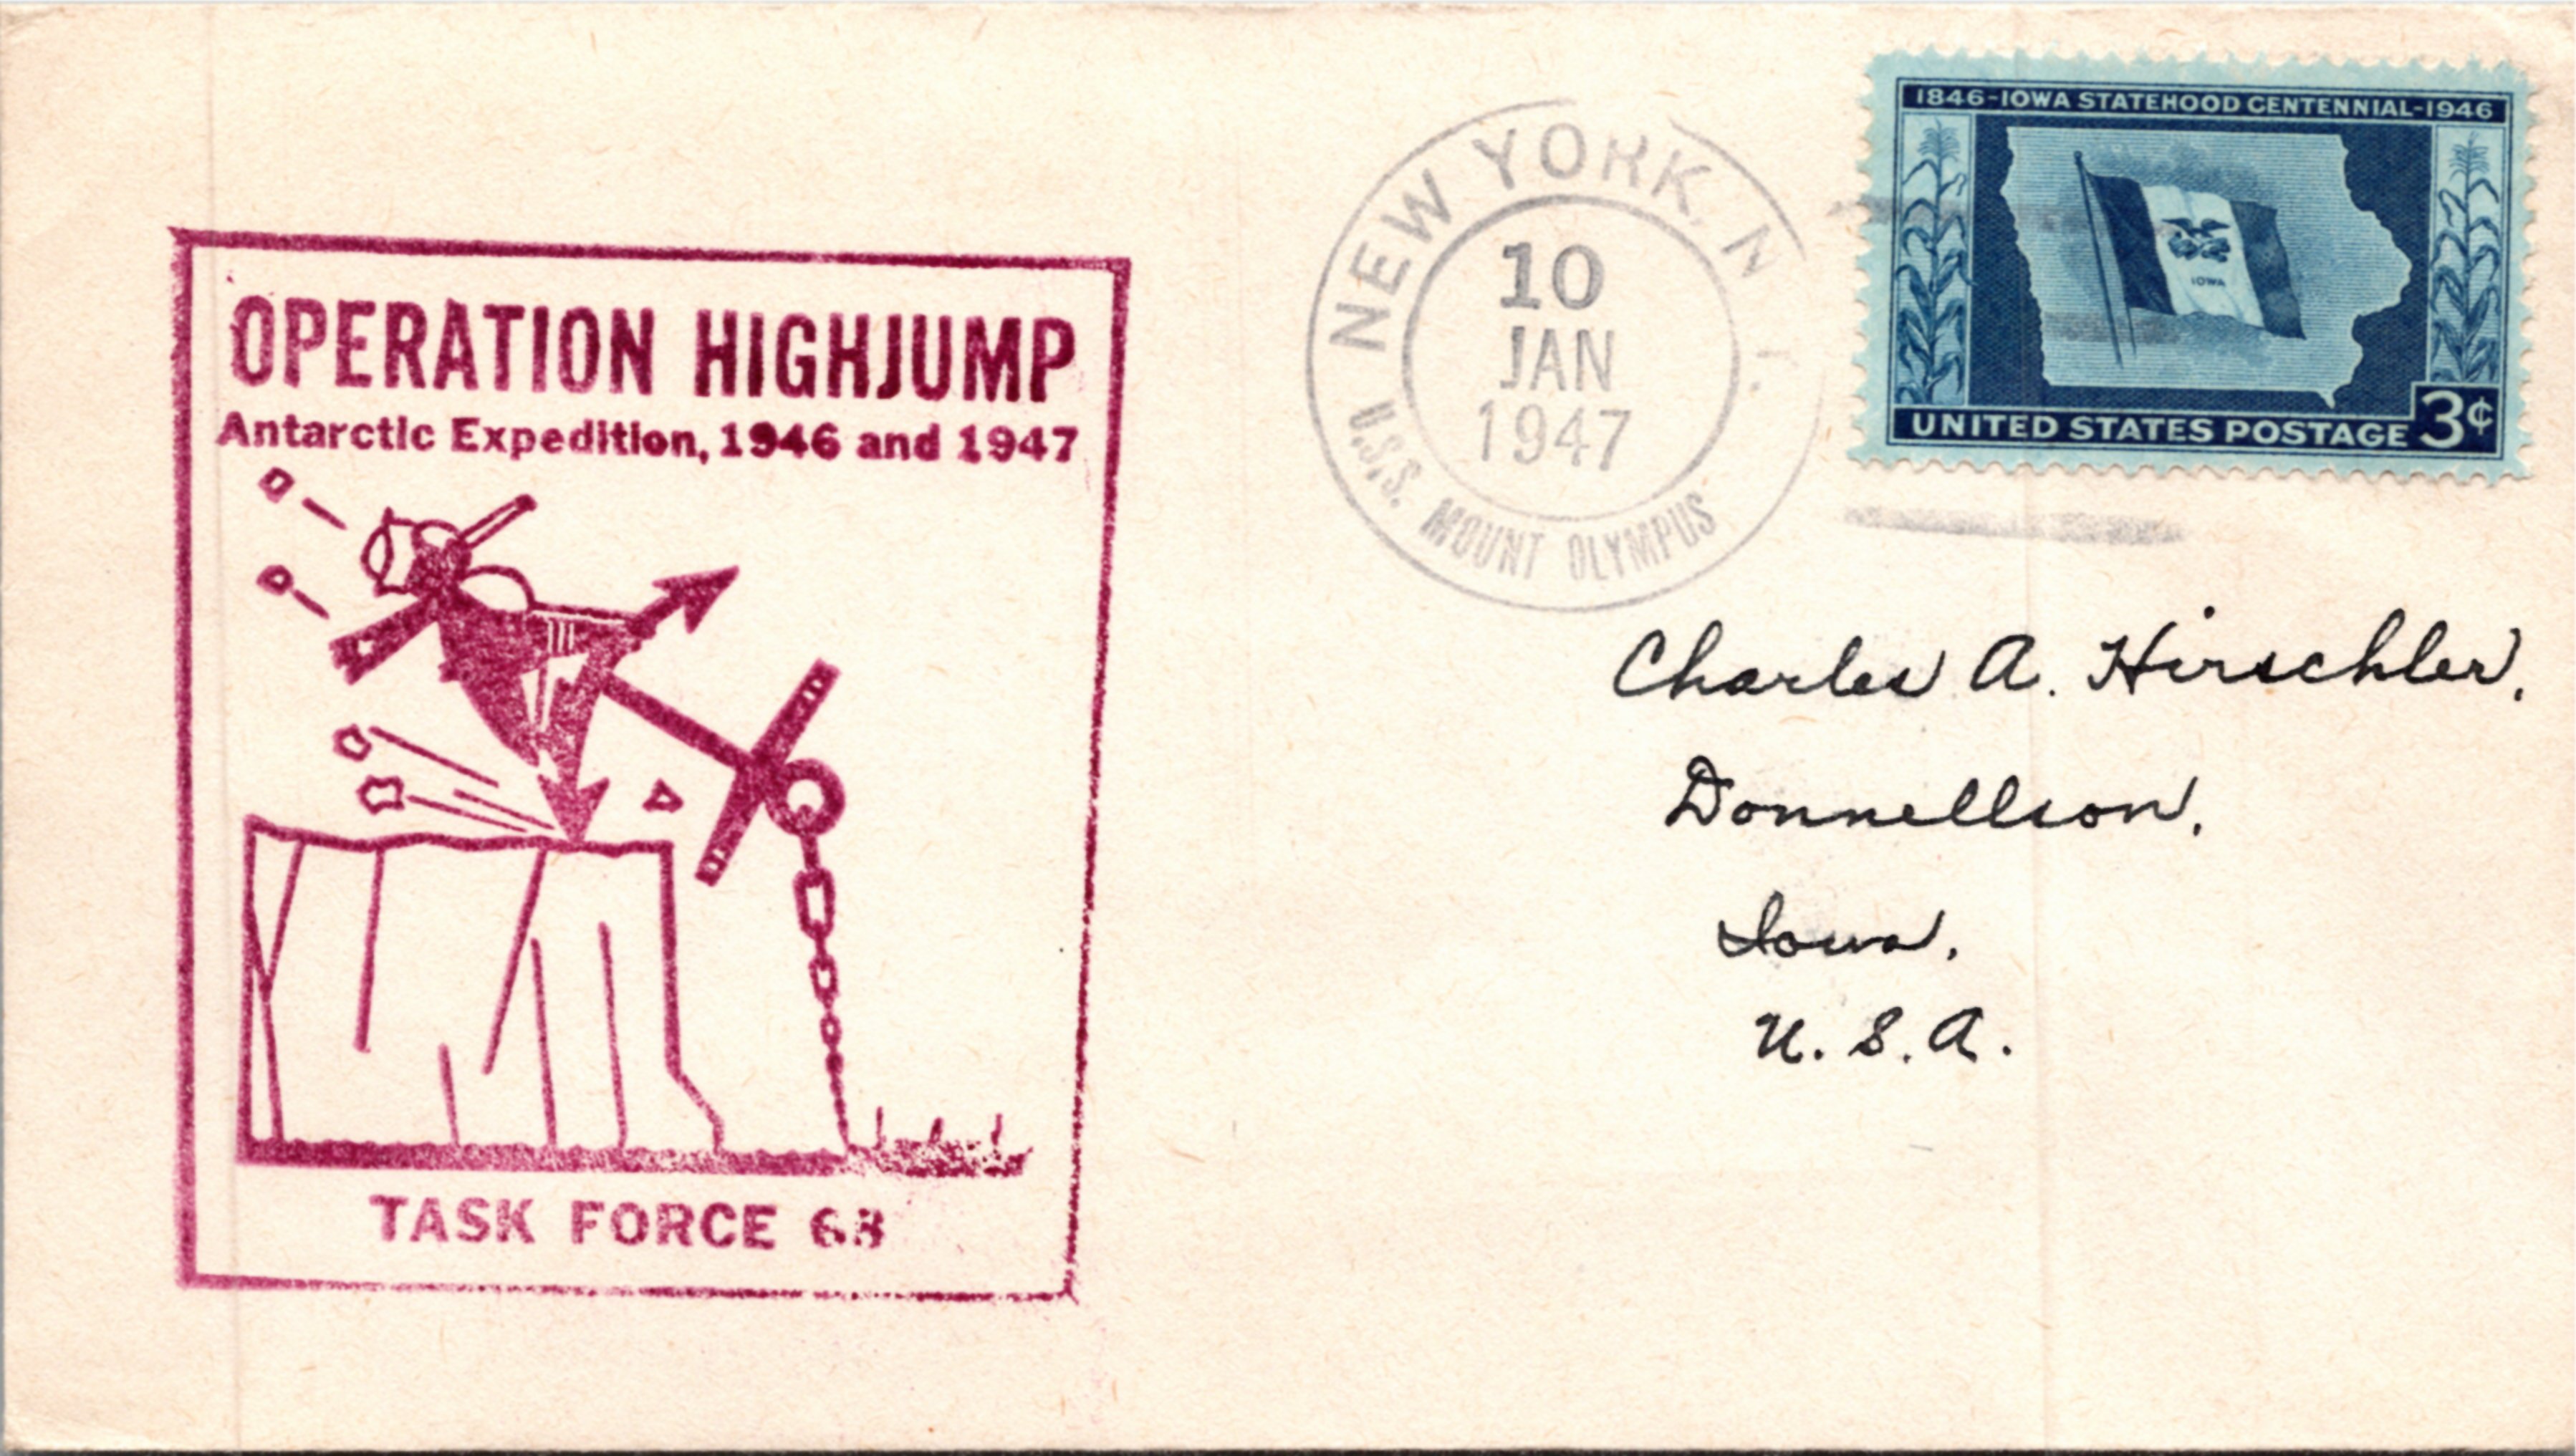 OPERATION HIGHJUMP
Antarctic Expedition, 1946 and 1947
TASK FORCE 68
NEW YORK, N.
10
JAN
1947
U.S.S. MOUNT OLYMPUS
1846-IOWA STATEHOOD CENTENNIAL-1946
IOWA
UNITED STATES POSTAGE 3¢
Charles A. Hirschler.
Donnellson.
Iowa.
U. S. A.